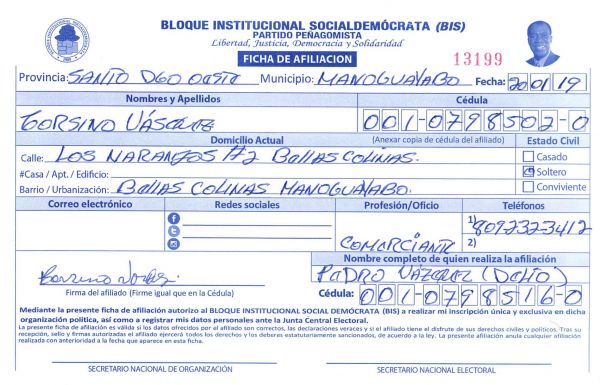 BLOQUE INSTITUCIONAL SOCIALDEMÓCRATA (BIS)
PARTIDO PEÑAGOMISTA
Libertad, Justicia, Democracia y Solidaridad
FICHA DE AFILIACION
13199
Provincia: SANTO DGO OESTE Municipio: MANOGUAYABO Fecha: 20 01 19
Nombres y Apellidos Cédula
VÁSQUEZ 001-0798502-0
Domicilio Actual (Anexar copia de cédula del afiliado) Estado Civil
Calle: LOS NARANJOS #2 BELLAS COLINAS. Casado
#Casa / Apt. / Edificio: Soltero
Barrio / Urbanización: BELLAS COLINAS MANOGUAYABO. Conviviente
Correo electrónico Redes sociales Profesión/Oficio Teléfonos
COMERCIANTE 1) 809-232-3412
2)
Nombre completo de quien realiza la afiliación
PEDRO VÁZQUEZ
Firma del afiliado (Firme igual que en la Cédula) Cédula: 001-0798516-0
Mediante la presente ficha de afiliación autorizo al BLOQUE INSTITUCIONAL SOCIAL DEMÓCRATA (BIS) a realizar mi inscripción única y exclusiva en dicha
organización política, así como a registrar mis datos personales ante la Junta Central Electoral.
La presente ficha de afiliación es válida si los datos ofrecidos por el afiliado son correctos, las declaraciones veraces y si el afiliado tiene el disfrute de sus derechos civiles y políticos. Tras su
recepción, sello y firmas autorizadas el afiliado ejercerá todos los derechos y los deberes estatutariamente sancionados, de acuerdo a la ley. La presente afiliación anula cualquier afiliación
realizada con anterioridad a la fecha que aparece en esta ficha.
SECRETARIO NACIONAL DE ORGANIZACIÓN SECRETARIO NACIONAL ELECTORAL